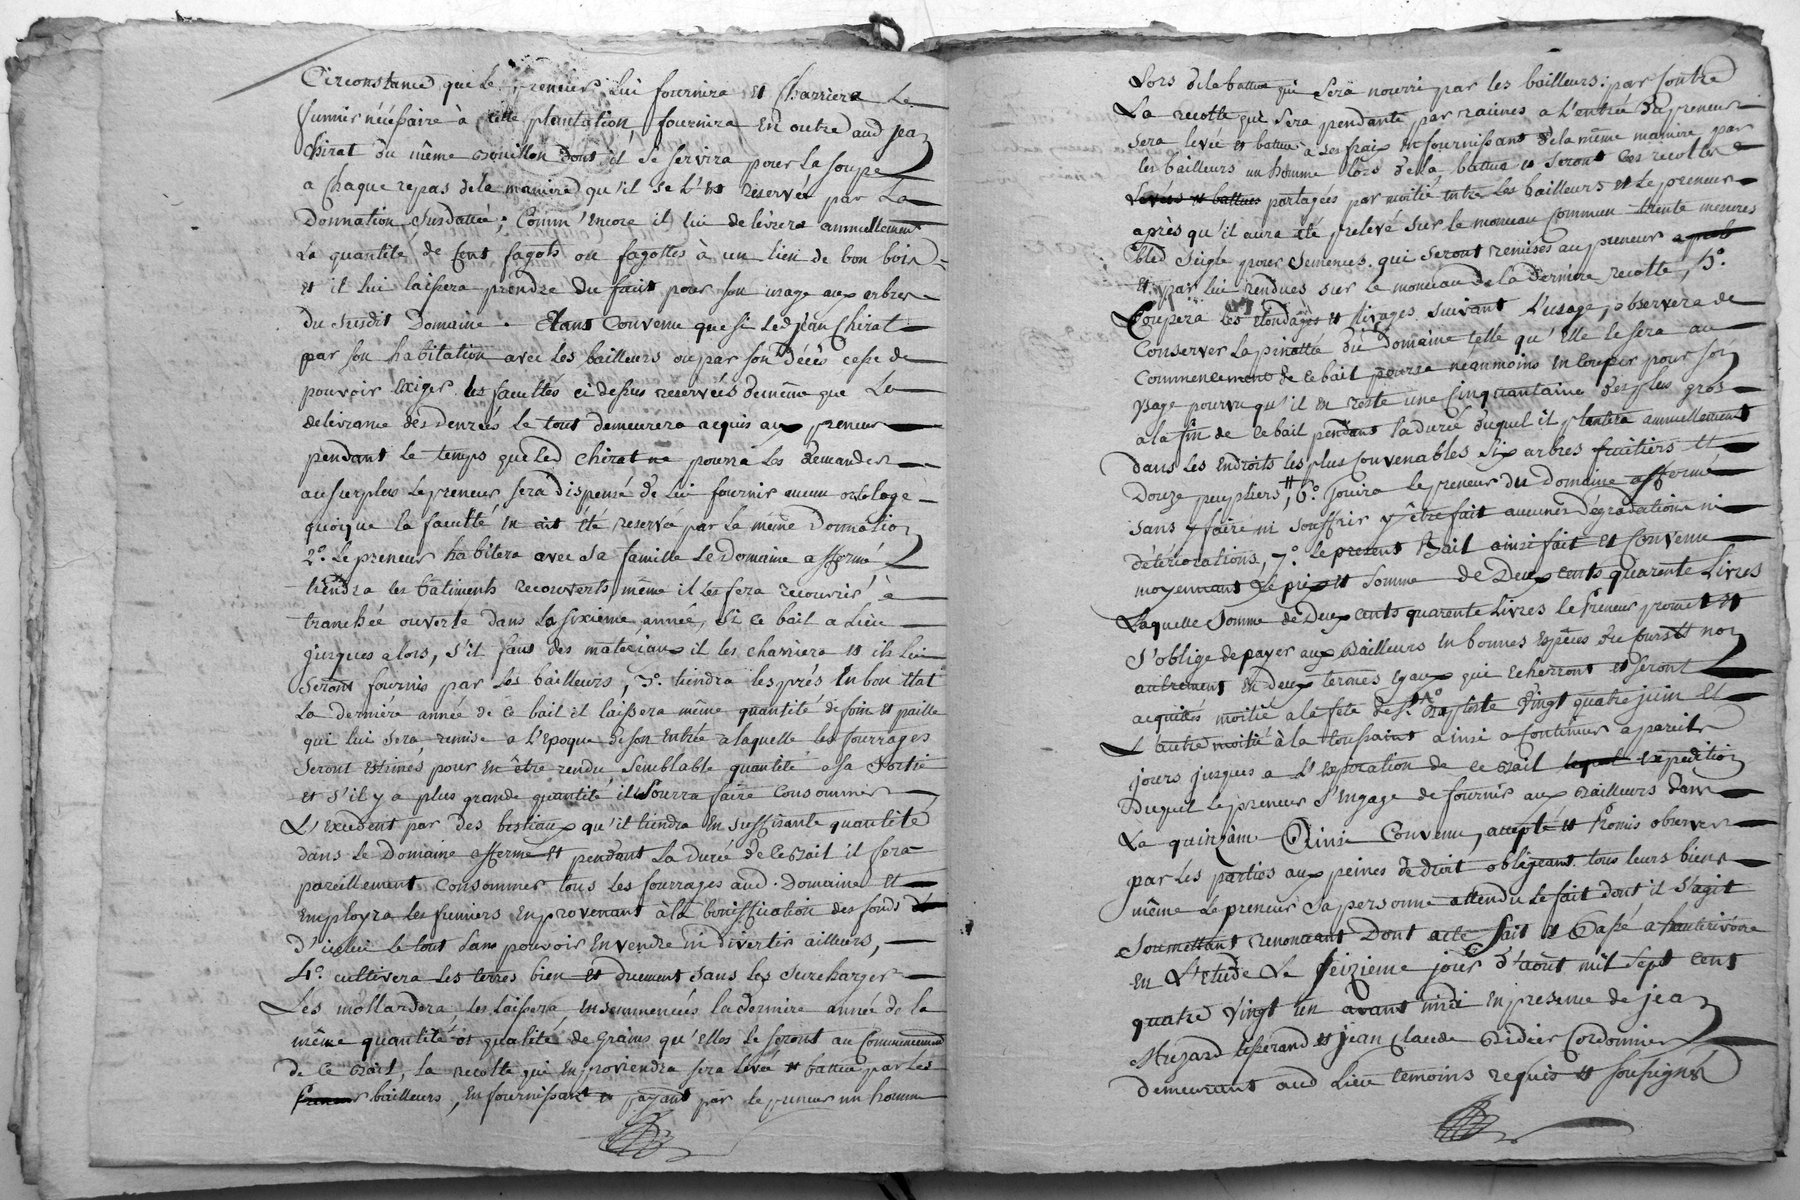 Circonstance que le preneur lui fournira et charriera le
fumier nécéssaire à cette plantation, fournira en outre aud jean
Chirat du même bouillon dont il se servira pour la soupe
a chaque repas de la maniere qu'il se l'est reservée par la
Donnation susdattée; Comm'encore il lui delivrera annuellement
la quantité de Cent fagots ou fagottes à un lien de bon bois
et il lui laissera prendre du fruit pour son usage aux arbres
du susdit Domaine. Etant convenu que si led jean Chirat
par son habitation avec les bailleurs ou par son décès cesse de
pouvoir exiger les facultés ci dessus reservées demême que la
delivrance des denrées le tout demeurera acquis au preneur
pendant le temps que led chirat ne pourra les demander
au surplus le preneur sera dispensé de lui fournir aucun
quoique la faculté en ait été reservée par la même Donnation
2°. Le preneur habitera avec sa famille le Domaine affermé
tiendra les batiments recouverts même il les fera recouvrir à
tranchée ouverte dans la sixieme année, si ce bail a lieu
jusques alors, s'il faut des materiaux il les charriera et ils lui
seront fournis par les bailleurs, 3°. tiendra les prés en bon état
la derniére année de ce bail il laissera même quantité de foin et paille
qui lui sera remise a l'époque de son entrée a laquelle les fourrages
seront estimés pour en être rendu semblable quantité a sa sortie
et s'il y a plus grande quantité il Pourra faire consommer
L'excedent par des bestiaux qu'il tiendra en suffisante quantité
dans le Domaine affermé et pendant la durée de ce Bail il fera
pareillement consommer tous les fourrages aud. Domaine et
employra les fumiers en provenant à la boniffication des fonds
d'icelui le tout sans pouvoir en vendre ni divertir ailleurs,
4°. cultivera les terres bien et duement sans les surcharger
les mollardera, les laissera ensemencées la derniere année de la
même quantité et qualité de Grains qu'elles le seront au Commencement
de ce Bail, la recolte qui en proviendra sera levée et battue par les
bailleurs, en fournissant et payant par le preneur un homme
Lors de la battue qui Sera nourri par les bailleurs: par contre
La recolte qui sera pendante par racines a l'entrée du preneur
sera levée et battue à ses fraix en fournissant de la même maniere par
les bailleurs un homme lors de la battue et seront ces recoltes
levées et battues partagées par moitié entre les bailleurs et le preneur
après qu'il aura été prelevé sur le monceau commun trente mesures
bled seigle pour semences qui seront remises au preneur
et par lui rendues sur le monceau de la derniere recolte, 5°.
Coupera les élondages et livages suivant l'usage, observera de
Conserver la pinattée du domaine telle qu'elle le sera au
Commencement de ce bail pourra néanmoins en couper pour son
Usage pourvu qu'il en reste une Cinquantaine des plus gros
a la fin de ce bail pendant la durée duquel il plantera annuellement
dans les endroits les plus convenables six arbres fruitiers et
Douze peupliers, 6°. jouira le preneur du domaine affermé
sans y faire ni souffrir y être fait aucunes dégradations ni
détériorations, 7°. le present Bail ainsi fait et convenu
moyennant le prix et somme de Deux cents quarente Livres
Laquelle somme de Deux cents quarente Livres le Preneur promet et
s'oblige de payer aux Bailleurs en bonnes espèces du cours et non
autrement en deux termes egaux qui echerront et seront
acquittés moitié a la fete de St. Jn. Baptiste Vingt quatre juin et
L'autre moitié à la toussaint ainsi a continuer a pareils
jours jusques a l'expiration de ce Bail lequel expedition
Duquel le preneur s'engage de fournir aux Bailleurs dans
La quinzaine Ainsi Convenu, accepté et Promis observer
par les parties aux peines de droit obligeant tous leurs biens
même le preneur sa personne attendu le fait dont il s'agit
Soumettant renonçant Dont acte fait et Passé a hauterivoire
en l'Etude le seizieme jour d'aout mil sept cent
quatre vingt un avant midi en presence de jean
et jean Claude Didier Cordonnier
demeurant aud Lieu temoins requis et soussignés